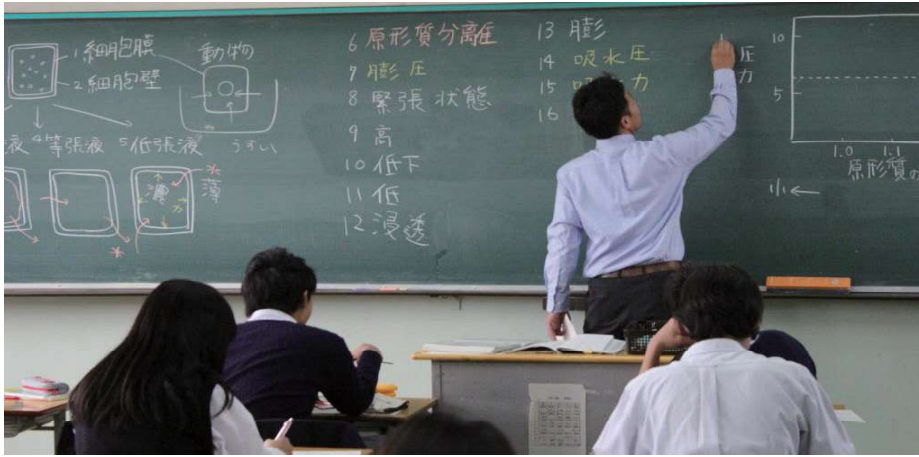 1 細胞膜
2 細胞壁
動物
液 4等張液 5低張液
うすい
濃
力
薄
6 原形質分離
7 膨圧
8 緊張状態
9 高
10 低下
11 低
12 浸透
13 膨
14 吸水圧
15 吸 力
16
圧
力
10
5
1.0 1.1
原形質の
1/1 ←